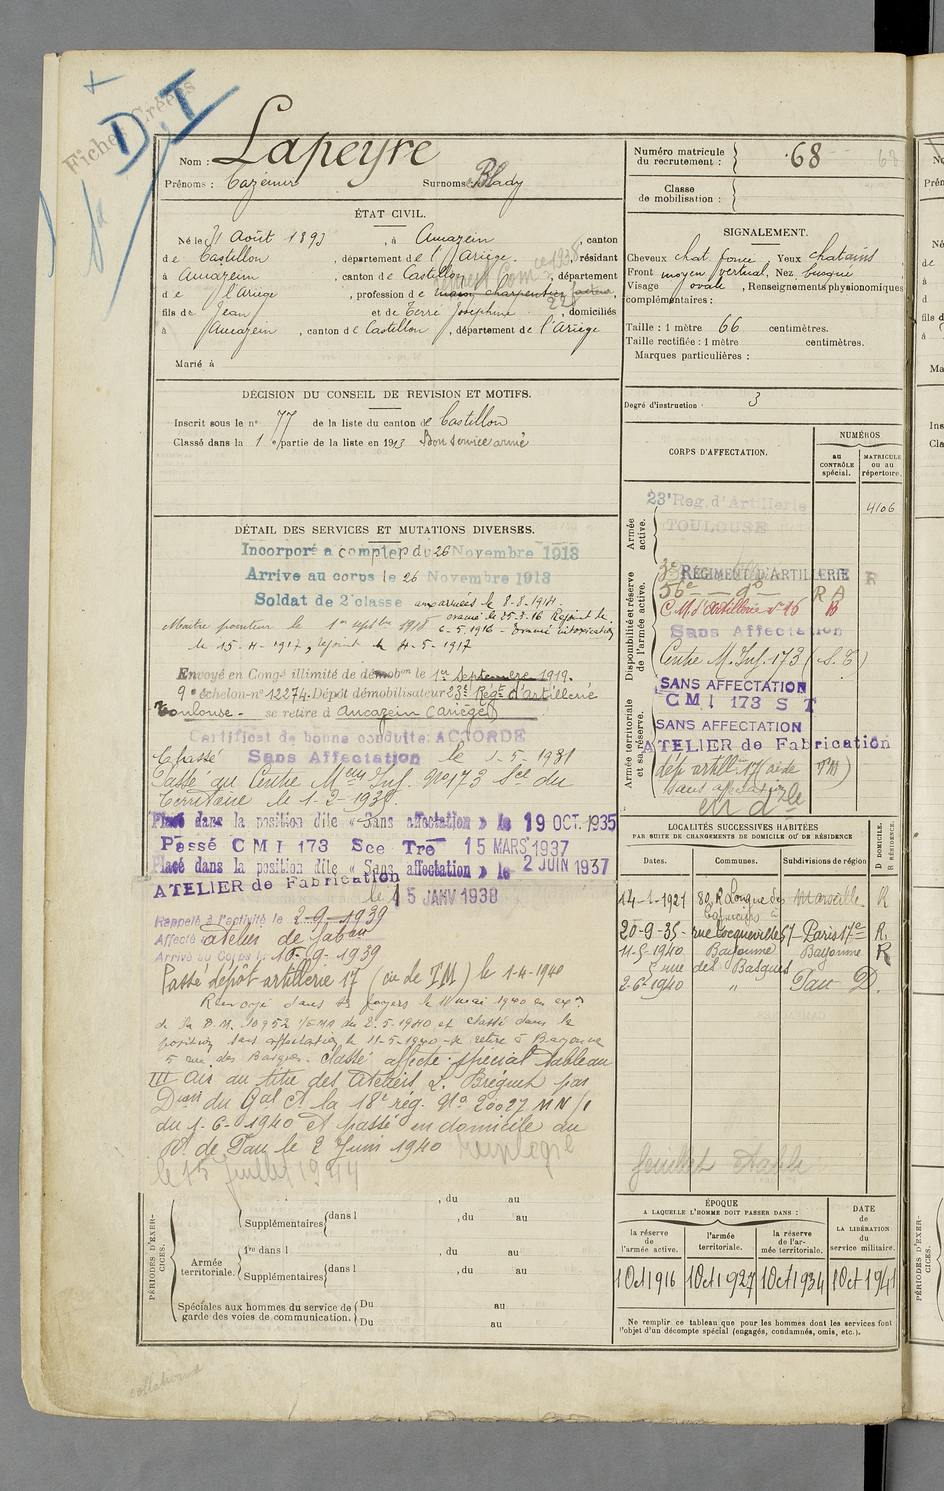 Fiches Créées
D.I
Nom : Lapeyre
Prénoms : Cazimir Surnoms : Blady
ÉTAT CIVIL.
Né le 31 Août 1893, à Aucazein, canton
de Castillon, département de l'Ariège, résidant
à Aucazein, canton de Castillon, département
de l'Ariège, profession de charpentier
fils de Jean et de Terré Josephine, domiciliés
à Aucazein, canton de Castillon, département de l'Ariège
Marié à
DÉCISION DU CONSEIL DE REVISION ET MOTIFS.
Inscrit sous le n° 77 de la liste du canton de Castillon
Classé dans la 1e partie de la liste en 1913 Bon service armé
DÉTAIL DES SERVICES ET MUTATIONS DIVERSES.
Incorporé à compter du 26 Novembre 1913
Arrivé au corps le 26 Novembre 1913
Soldat de 2e classe aux armées le 8-8-1914.
évacué le 25-3-16 Rejoint le
Maitre pointeur le 1er septbre 1918 6-5-1916 - évacué intoxication
le 15-4-1917, rejoint le 4-5-1917
Envoyé en Congé illimité de démobon le 1er Septembre 1919.
9e échelon-n° 12274. Dépôt démobilisateur 23e Régt d'Artillerie
Toulouse - se retire à Aucazein (Ariège)
Certificat de bonne conduite: ACCORDÉ
Passé Sans Affectation le 1-5-1931
Passé au Centre Meur Inf. N°173 Sce du
Territoire le 1-2-193
Placé dans la position dite « Sans affectation » le 19 OCT. 1935
Passé CMI 173 Sce Tre 15 MARS 1937
Placé dans la position dite « Sans affectation » le 2 JUIN 1937
ATELIER de Fabrication
le 15 JANV 1938
Rappelé à l'activité le 2-9-1939
Affecté atelier de fabon
Arrivé au Corps le 16-9-1939
Passé dépôt artillerie 17 (aide TM) le 1-4-1940
Renvoyé dans ses foyers le 11 mai 1940 en exon
de la D.M. 10952 1/EMA du 2-5-1940 et classé dans la
position sans affectation le 11-5-1940 - se retire à Bayonne
5 rue des Basques. Classé affecté spécial tableau
III air au titre des Ateliers L. Bréguet par
Don du Gal Ct la 18e rég. N° 20027 MN/1
du 1-6-1940 et passé en domicile au
Rt de Pau le 2 Juin 1940 remplacé
le 15 juillet 1944
PÉRIODES D'EXERCICES.
, du au
Supplémentaires dans l , du au
Armée territoriale.
1re dans l , du au
Supplémentaires dans l , du au
Spéciales aux hommes du service de garde des voies de communication.
Du au
Du au
Numéro matricule du recrutement : 68
Classe de mobilisation :
SIGNALEMENT.
Cheveux chat. foncé Yeux chatains
Front moyen vertical, Nez busqué
Visage ovale, Renseignements physionomiques
complémentaires :
Taille : 1 mètre 66 centimètres.
Taille rectifiée : 1 mètre centimètres.
Marques particulières :
Degré d'instruction : 3
CORPS D'AFFECTATION.
NUMÉROS
au CONTRÔLE spécial.
MATRICULE ou au répertoire.
Armée active.
23e Reg. d'Artillerie 4106
TOULOUSE
Disponibilité et réserve de l'armée active.
3e RÉGIMENT D'ARTILLERIE R
56e — d° — RA
C M d'Artillerie n° 16 R
Sans Affectation
Centre M. Inf. 173 (S.T)
Armée territoriale et sa réserve.
SANS AFFECTATION
CMI 173 S T
SANS AFFECTATION
ATELIER de Fabrication
dép artill. 17 (aide TM)
sans affectation
en dle
LOCALITÉS SUCCESSIVES HABITÉES
PAR SUITE DE CHANGEMENTS DE DOMICILE OU DE RÉSIDENCE
Dates. Communes. Subdivisions de région D DOMICILE. R RÉSIDENCE.
14-1-1921 82 R Longue des Capucins Marseille R
20-9-35 rue Tocqueville 57 Paris 17e R.
11-5-1940 Bayonne Bayonne R
5 rue des Basques
2-6-1940 " Pau D.
feuillet établi
ÉPOQUE
A LAQUELLE L'HOMME DOIT PASSER DANS :
la réserve de l'armée active. l'armée territoriale. la réserve de l'armée territoriale.
DATE de LA LIBÉRATION du service militaire.
1 Oct 1916 1 Oct 1927 1 Oct 1934 1 Oct 1941
Ne remplir ce tableau que pour les hommes dont les services font
l'objet d'un décompte spécial (engagés, condamnés, omis, etc.).
collationné